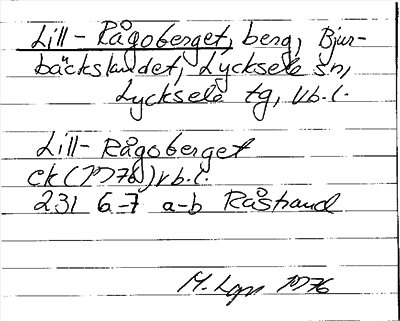 Lill-Rågoberget, berg, Bjur-
bäckslandet, Lycksele sn,
Lycksele tg, Vb.l.
Lill-Rågoberget
ek (1776) vb.l.
231 6-7 a-b Råstrand
M. Lgn 1976